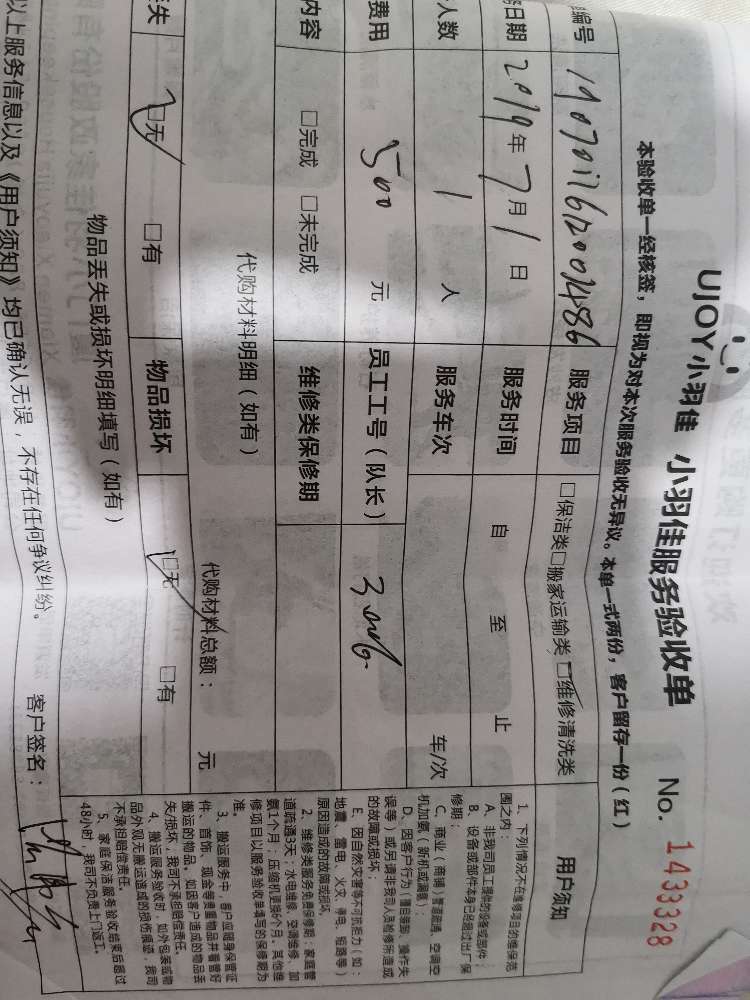 UJOY小羽佳 小羽佳服务验收单 No. 1433328
本验收单一经核签，即视为对本次服务验收无异议。本单一式两份，客户留存一份（红）
编号 服务项目 □保洁类□搬家运输类□维修清洗类
日期 2019年7月1日 服务时间 自 至 止
人数 1 人 服务车次 车/次
费用 500 元 员工工号（队长）
内容 □完成 □未完成 维修类保修期
代购材料明细（如有） 代购材料总额： 元
失 □无 □有 物品损坏 □无 □有
物品丢失或损坏明细填写（如有）
以上服务信息以及《用户须知》均已确认无误，不存在任何争议纠纷。 客户签名：
用户须知
1、下列情况不在维修项目的维保范
围之内：
A、非我司员工提供的设备或部件；
B、设备或部件本身已经超过出厂保
修期；
C、商业（商铺）管道疏通、空调空
机加氨（新机或漏氨）；
D、因客户行为（擅自灌卸、操作失
误等）或另请非我司人员检修所造成
的故障或损坏；
E、因自然灾害等不可抗拒力（如：
地震、雷电、火灾、停电、短路等）
原因造成的故障或损坏
2、维修类服务免费保修期：家庭管
道疏通3天；水电维修、空调维修、加
氨1个月；压缩机更换6个月。其他维
修项目以服务验收单填写的保修期为
准。
3、搬运服务中，客户应随身保管证
件、首饰、现金等贵重物品并看管好
搬运的物品。如因客户造成的物品丢
失/损坏，我司不承担赔偿责任。
4、搬运服务验收时，如外包装或物
品外观无搬运造成的损伤痕迹，我司
不承担赔偿责任。
5、家庭保洁服务验收结束后超过
48小时，我司不负责上门返工。